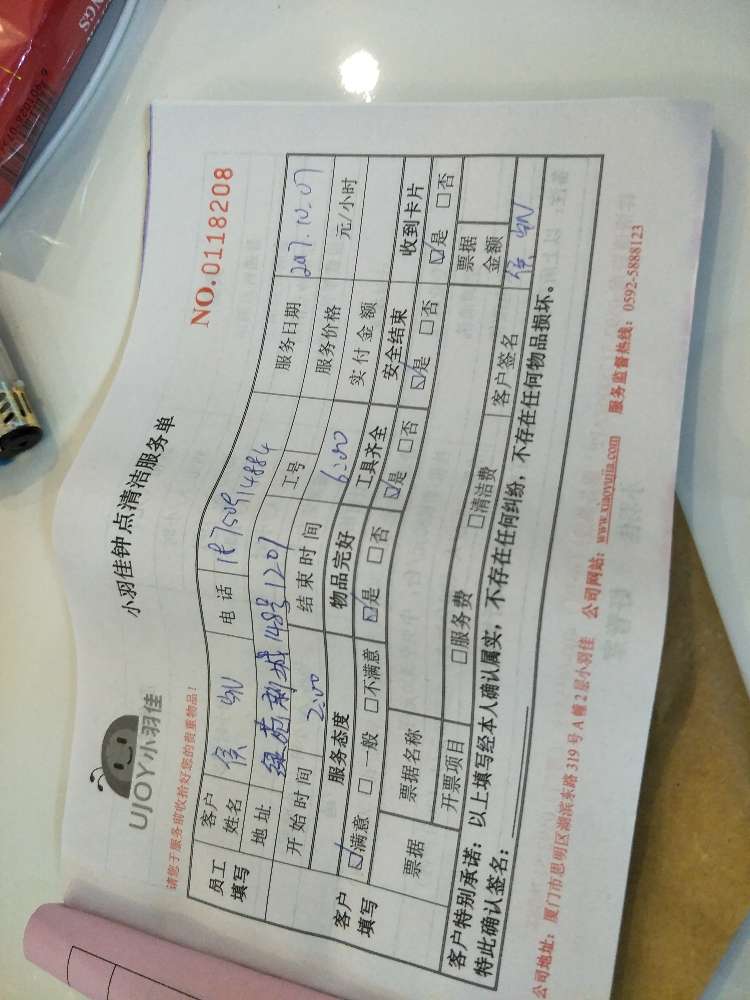 NGS
UJOY小羽佳
小羽佳钟点清洁服务单
NO.0118208
请您于服务前收拾好您的贵重物品！
员工填写
客户姓名
电话
服务日期 2017.10.07
地址 148号1201
工号
服务价格 元/小时
开始时间 2:00 结束时间 6:00 实付金额
客户填写
服务态度 物品完好 工具齐全 安全结束 收到卡片
☑满意 □一般 □不满意 ☑是 □否 ☑是 □否 ☑是 □否 ☑是 □否
票据 票据名称 票据金额
开票项目 □服务费 □清洁费
客户特别承诺：以上填写经本人确认属实，不存在任何纠纷，不存在任何物品损坏。
特此确认签名： 客户签名
公司地址：厦门市思明区湖滨东路319号A幢2层小羽佳 公司网站：www.xiaoyujia.com 服务监督热线：0592-5888123